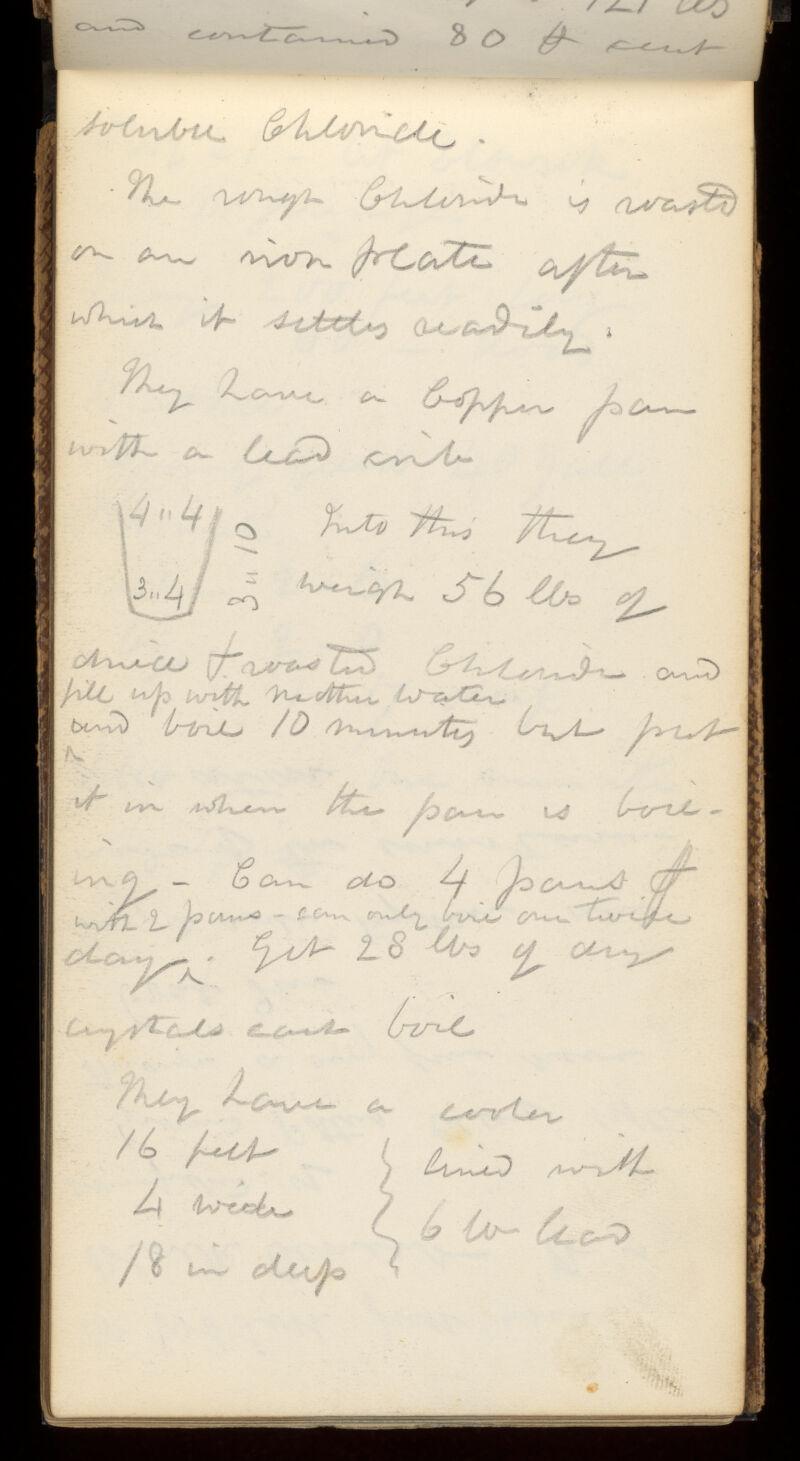 121 lbs
and contained 80 ⅌ cent
soluble Chloride.
The rough Chloride is roasted
on an iron plate after
which it settles readily.
They have a Copper pan
with a lead
4"4 Into this they
3"4 3"10 weigh 56 lbs of
dried & roasted Chloride and
fill up with mother water
and boil 10 minutes but put
it in when the pan is boil-
ing - Can do 4 pans ⅌
with 2 pans - can only boil one twice
day. Get 28 lbs of dry
crystals each boil
They have a cooler
16 feet } lined with
4 wide 6 lb lead
18 in deep